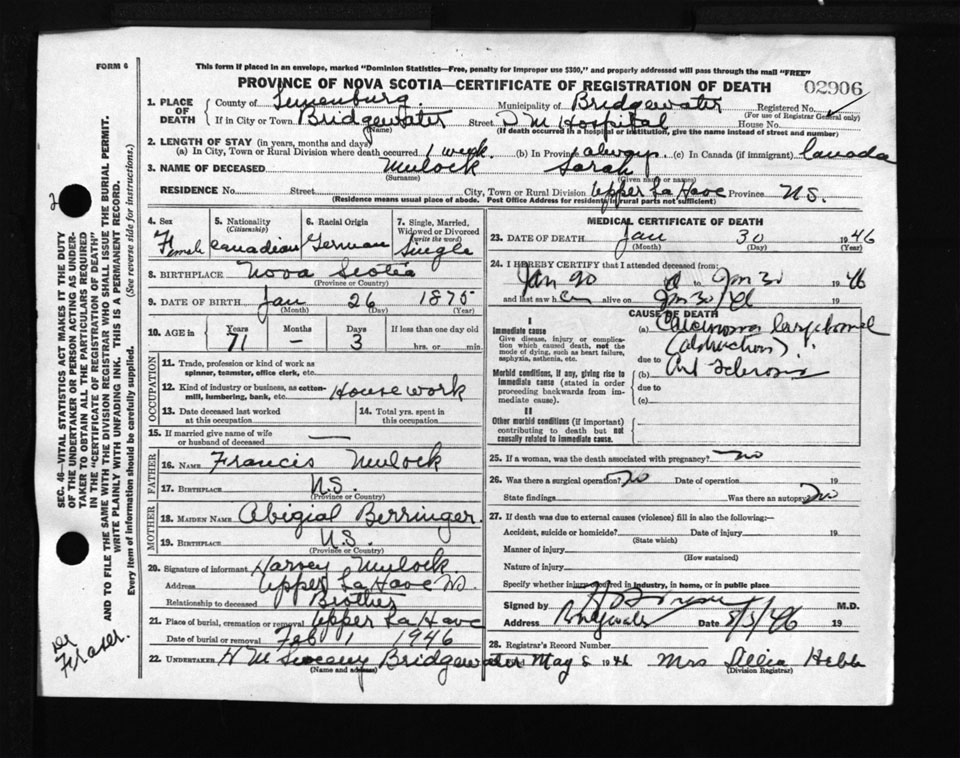 FORM 6
This form if placed in an envelope, marked "Dominion Statistics—Free, penalty for improper use $300," and properly addressed will pass through the mail "FREE"
PROVINCE OF NOVA SCOTIA—CERTIFICATE OF REGISTRATION OF DEATH 02906
1. PLACE OF DEATH County of Lunenburg Municipality of Bridgewater Registered No.
(For use of Registrar General only)
If in City or Town Bridgewater Street D M Hospital House No.
(Name) (If death occurred in a hospital or institution, give the name instead of street and number)
2. LENGTH OF STAY (in years, months and days)
(a) In City, Town or Rural Division where death occurred 1 week (b) In Province always (c) In Canada (if immigrant) Canada
3. NAME OF DECEASED Mulock Sarah
(Surname) (Given name or names)
RESIDENCE No. Street City, Town or Rural Division Upper LaHave Province N.S.
(Residence means usual place of abode. Post Office Address for residents in rural parts not sufficient)
4. Sex Female
5. Nationality (Citizenship) Canadian
6. Racial Origin German
7. Single, Married, Widowed or Divorced (write the word) Single
8. BIRTHPLACE Nova Scotia
(Province or Country)
9. DATE OF BIRTH Jan 26 1875
(Month) (Day) (Year)
10. AGE in Years Months Days If less than one day
71 — 3 hrs. or min.
OCCUPATION
11. Trade, profession or kind of work as spinner, teamster, office clerk, etc.
12. Kind of industry or business, as cotton-mill, lumbering, bank, etc. Housework
13. Date deceased last worked at this occupation
14. Total yrs. spent in this occupation
15. If married give name of wife or husband of deceased —
FATHER
16. NAME Francis Mulock
17. BIRTHPLACE N.S.
(Province or Country)
MOTHER
18. MAIDEN NAME Abigial Berringer
19. BIRTHPLACE N.S.
(Province or Country)
20. Signature of informant Harvey Mulock
Address Upper LaHave
Relationship to deceased Brother
21. Place of burial, cremation or removal Upper LaHave
Date of burial or removal Feb 1 1946
22. UNDERTAKER H M Sweeny Bridgewater
MEDICAL CERTIFICATE OF DEATH
23. DATE OF DEATH Jan 30 1946
(Month) (Day) (Year)
24. I HEREBY CERTIFY that I attended deceased from:
Jan 20 to Jan 30 1946
and last saw h er alive on Jan 30/46
CAUSE OF DEATH
I
Immediate cause
Give disease, injury or complication which caused death, not the mode of dying, such as heart failure, asphyxia, asthenia, etc.
(a) Carcinoma large bowel
(obstruction)
due to
Morbid conditions, if any, giving rise to immediate cause (stated in order proceeding backwards from immediate cause).
(b) Art Sclerosis
due to
(c)
II
Other morbid conditions (if important) contributing to death but not causally related to immediate cause.
25. If a woman, was the death associated with pregnancy? No
26. Was there a surgical operation? No Date of operation 19
State findings Was there an autopsy No
27. If death was due to external causes (violence) fill in also the following:—
Accident, suicide or homicide? Date of injury 19
(State which)
Manner of injury
(How sustained)
Nature of injury
Specify whether injury occurred in industry, in home, or in public place
Signed by M.D.
Address Bridgewater Date 8/5/46 19
28. Registrar's Record Number
May 8 1946 Mrs Hebb
(Division Registrar)
SEC. 46—VITAL STATISTICS ACT MAKES IT THE DUTY
OF THE UNDERTAKER OR PERSON ACTING AS UNDERTAKER
TO OBTAIN ALL THE PARTICULARS REQUIRED
IN THE "CERTIFICATE OF REGISTRATION OF DEATH"
AND TO FILE THE SAME WITH THE DIVISION REGISTRAR WHO SHALL ISSUE THE BURIAL PERMIT.
WRITE PLAINLY WITH UNFADING INK. THIS IS A PERMANENT RECORD.
Every item of information should be carefully supplied. (See reverse side for instructions.)
2
Dr Fraser.